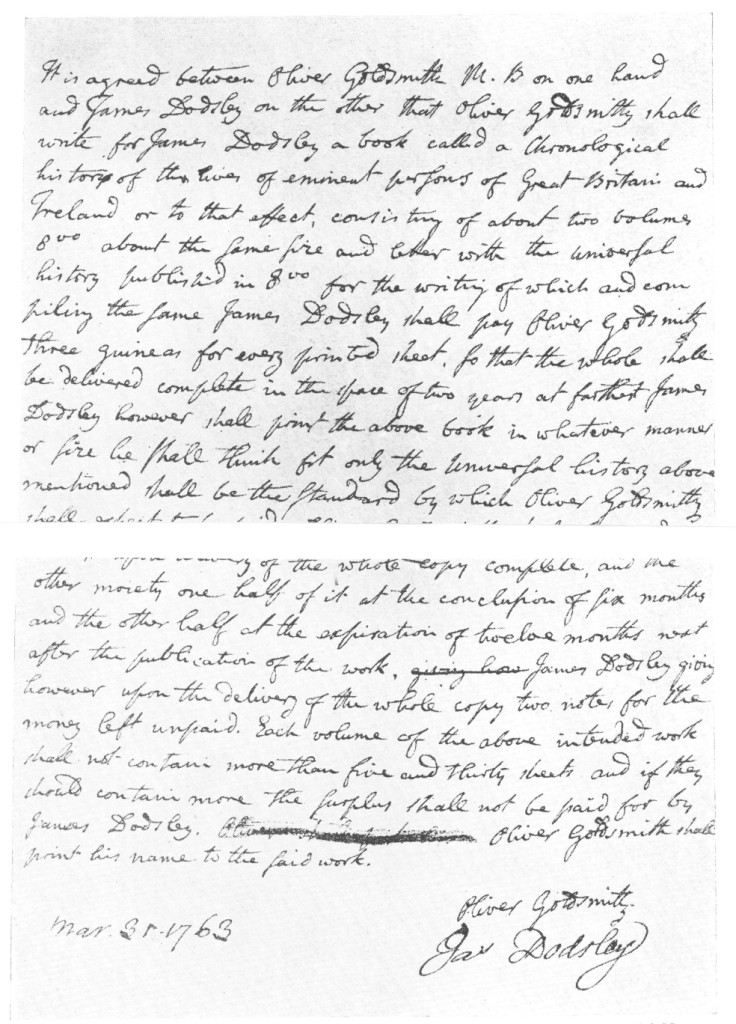 It is agreed between Oliver Goldsmith M. B on one hand
and James Dodsley on the other that Oliver Goldsmith shall
write for James Dodsley a book called a Chronological
history of the lives of eminent persons of Great Britain and
Ireland or to that effect, consisting of about two volumes
8vo about the same size and letter with the universal
history published in 8vo for the writing of which and com
piling the same James Dodsley shall pay Oliver Goldsmith
three guineas for every printed sheet, so that the whole shall
be delivered complete in the space of two years at farthest James
Dodsley however shall print the above book in whatever manner
or size he shall think fit only the Universal history above
mentioned shall be the standard by which Oliver Goldsmith
shall expect to be paid.
upon delivery of the whole copy complete, and the
other moiety one half of it at the conclusion of six months
and the other half at the expiration of twelve months next
after the publication of the work, giving how James Dodsley giving
however upon the delivery of the whole copy two notes for the
money left unpaid. Each volume of the above intended work
shall not contain more than five and thirty sheets and if they
should contain more the surplus shall not be paid for by
James Dodsley. Oliver Goldsmith shall
print his name to the said work.
Oliver Goldsmith.
Mar. 31. 1763
Jas Dodsley